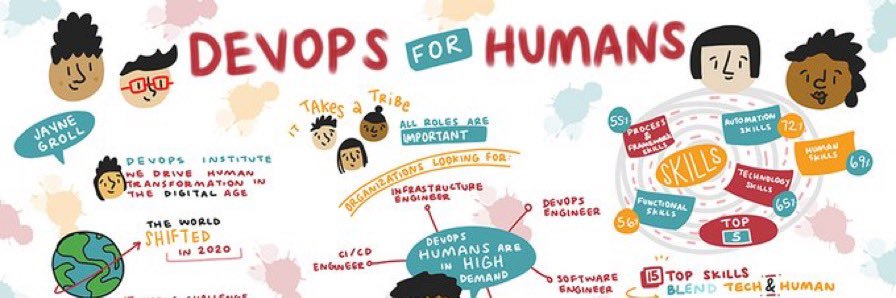 DEVOPS FOR HUMANS
JAYNE
GROLL
DEVOPS INSTITUTE
WE DRIVE HUMAN
TRANSFORMATION IN
THE DIGITAL AGE
THE WORLD
SHIFTED
IN 2020
IT TAKES a TRIBE
ALL ROLES ARE
IMPORTANT
ORGANIZATIONS LOOKING FOR:
INFRASTRUCTURE
ENGINEER
DEVOPS
ENGINEER
CI/CD
ENGINEER
DEVOPS
HUMANS ARE
IN HIGH
DEMAND
SOFTWARE
ENGINEER
55%
PROCESS &
FRAMEWORK
SKILLS
AUTOMATION
SKILLS
72%
HUMAN
SKILLS
69%
SKILLS
TECHNOLOGY
SKILLS
65%
FUNCTIONAL
SKILLS
56%
TOP
5
15 TOP SKILLS
BLEND TECH & HUMAN